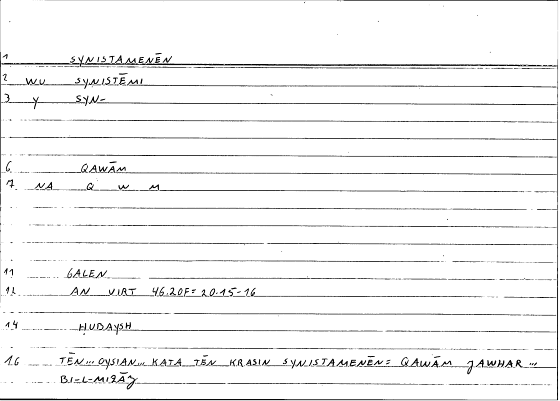 1 SYNISTAMENĒN
2 WU SYNISTĒMI
3 Y SYN-
6 QAWĀM
7 NA Q W M
11 GALEN
12 AN VIRT 46.20F= 20.15-16
14 ḤUDAYSH
16 TĒN... OYSIAN... KATA TĒN KRASIN SYNISTAMENĒN= QAWĀM JAWHAR...
BI-L-MIZĀJ